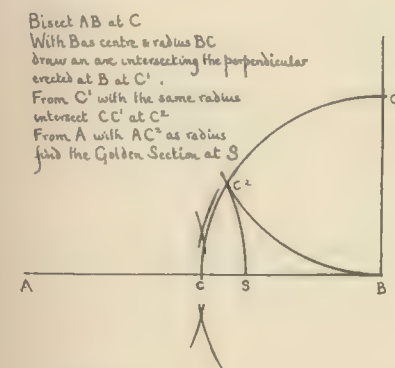 Bisect AB at C
With B as centre & radius BC
draw an arc intersecting the perpendicular
erected at B at C¹.
From C¹ with the same radius
intersect CC¹ at C²
From A with AC² as radius
find the Golden Section at S
C²
A C S B